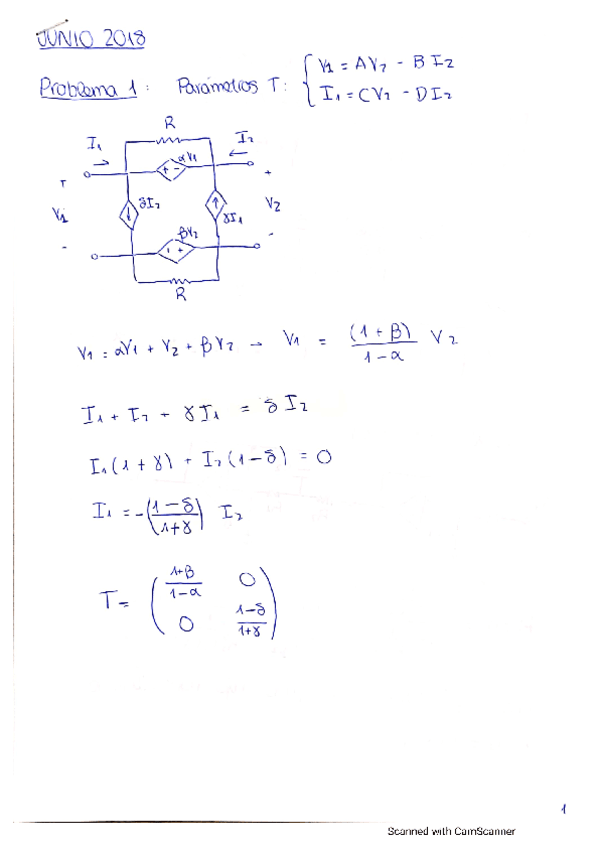 JUNIO 2018
Problema 1: Parámetros T: { V1 = AV2 - BI2
I1 = CV2 - DI2
R
I1 I2
αV1
+ -
+ +
V1 δI2 γI1 V2
- -
βV2
- +
R
V1 = αV1 + V2 + βV2 → V1 = (1+β)/(1-α) V2
I1 + I2 + γI1 = δI2
I1(1+γ) + I2(1-δ) = 0
I1 = -(1-δ)/(1+γ) I2
T = ( (1+β)/(1-α) 0
0 (1-δ)/(1+γ) )
1
Scanned with CamScanner